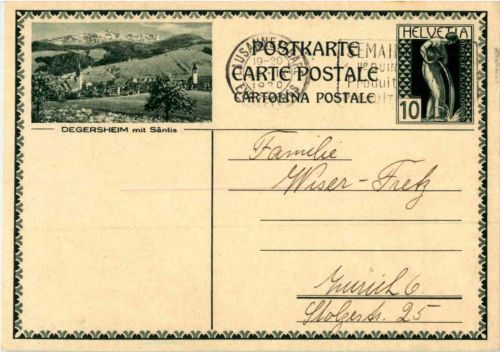 HELVETIA
POSTKARTE
CARTE POSTALE
CARTOLINA POSTALE
10
LAUSANNE
19-20
1930
DEGERSHEIM mit Säntis
Familie
Wiser-Fretz
Zürich 6.
Stolzestr. 25